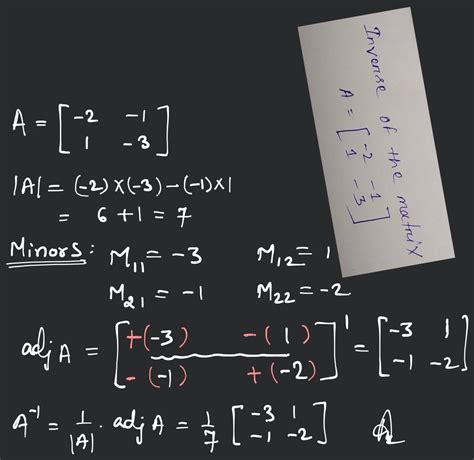 Inverse of the matrix
A = [-2 -1
1 -3]
A = [-2 -1
1 -3]
|A| = (-2)×(-3)-(-1)×1
= 6+1 = 7
Minors: M11 = -3 M12 = 1
M21 = -1 M22 = -2
adj A = [+(-3) -(1)
-(-1) +(-2)]' = [-3 1
-1 -2]
A^-1 = 1/|A| . adj A = 1/7 [-3 1
-1 -2]